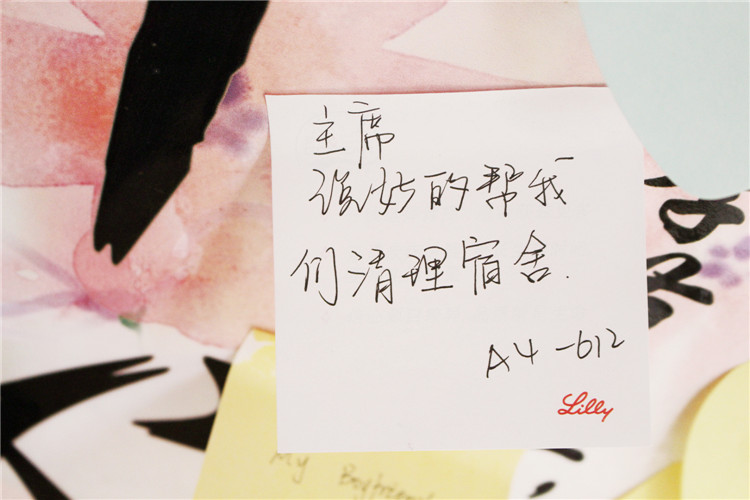 主席
说好的帮我
们清理宿舍.
A4-612
Lilly
My Boyfriend